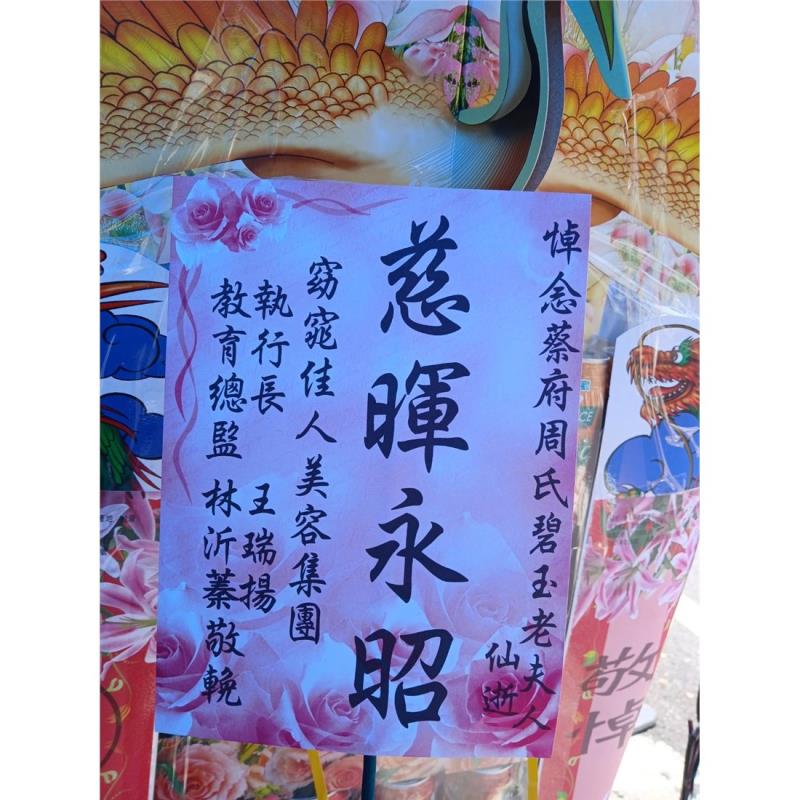 悼念蔡府周氏碧玉老夫人
仙逝
慈暉永昭
窈窕佳人美容集團
執行長 王瑞揚
教育總監 林沂蓁敬輓
敬悼